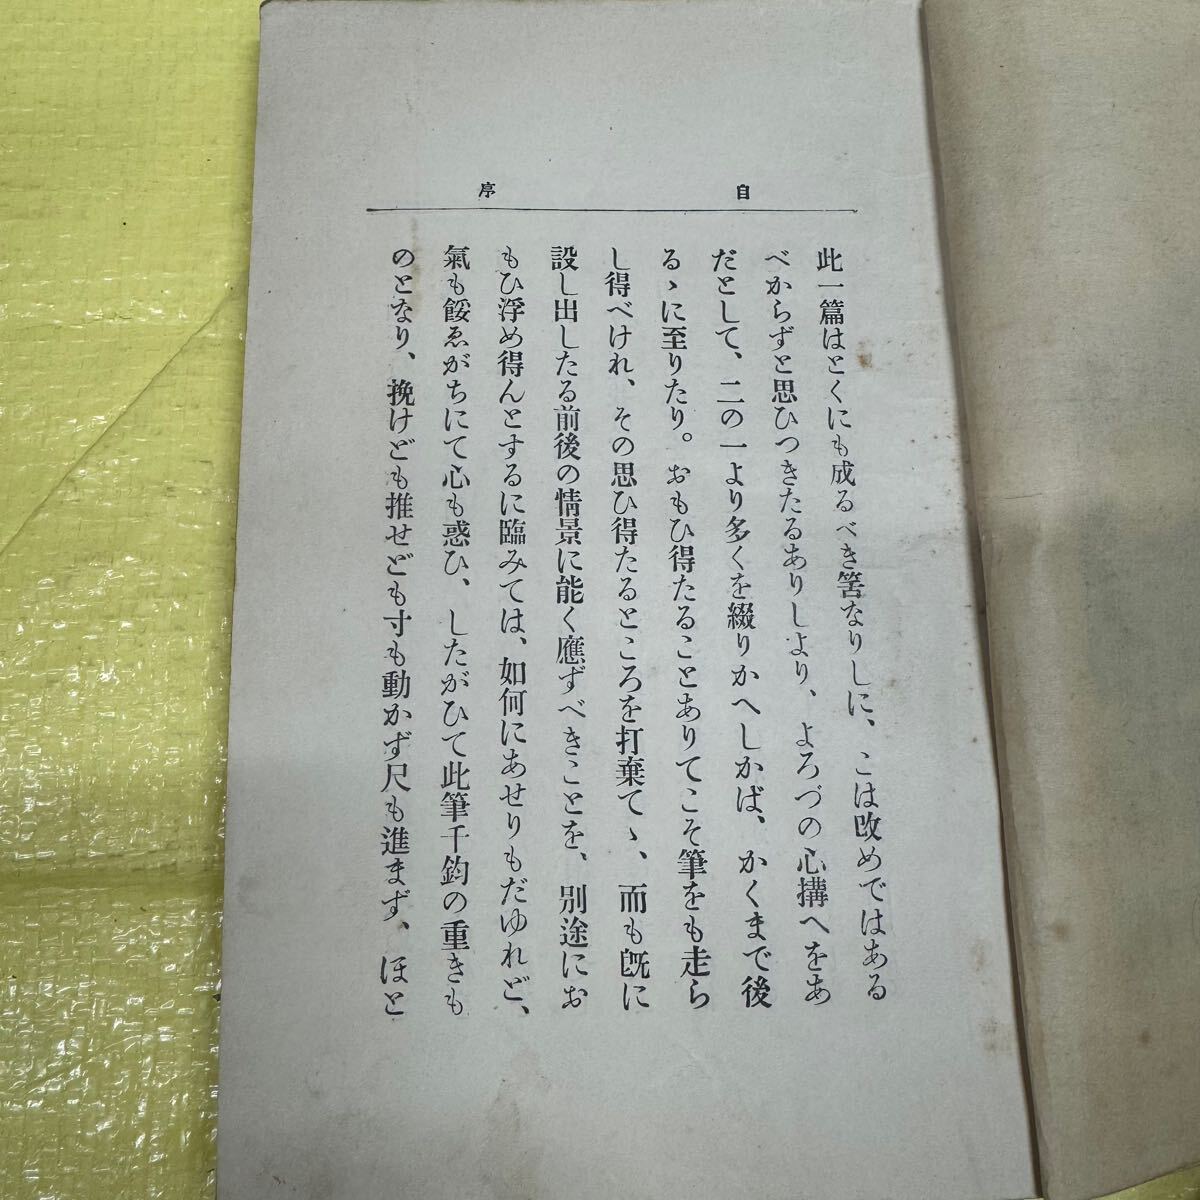 自序
此一篇はとくにも成るべき筈なりしに、こは改めではある
べからずと思ひつきたるありしより、よろづの心搆へをあ
だとして、二の一より多くを綴りかへしかば、かくまで後
るゝに至りたり。おもひ得たることありてこそ筆をも走ら
し得べけれ、その思ひ得たるところを打棄てゝ、而も既に
設し出したる前後の情景に能く應ずべきことを、別途にお
もひ浮め得んとするに臨みては、如何にあせりもだゆれど、
氣も餒ゑがちにて心も惑ひ、したがひて此筆千鈞の重きも
のとなり、挽けども推せども寸も動かず尺も進まず、ほと